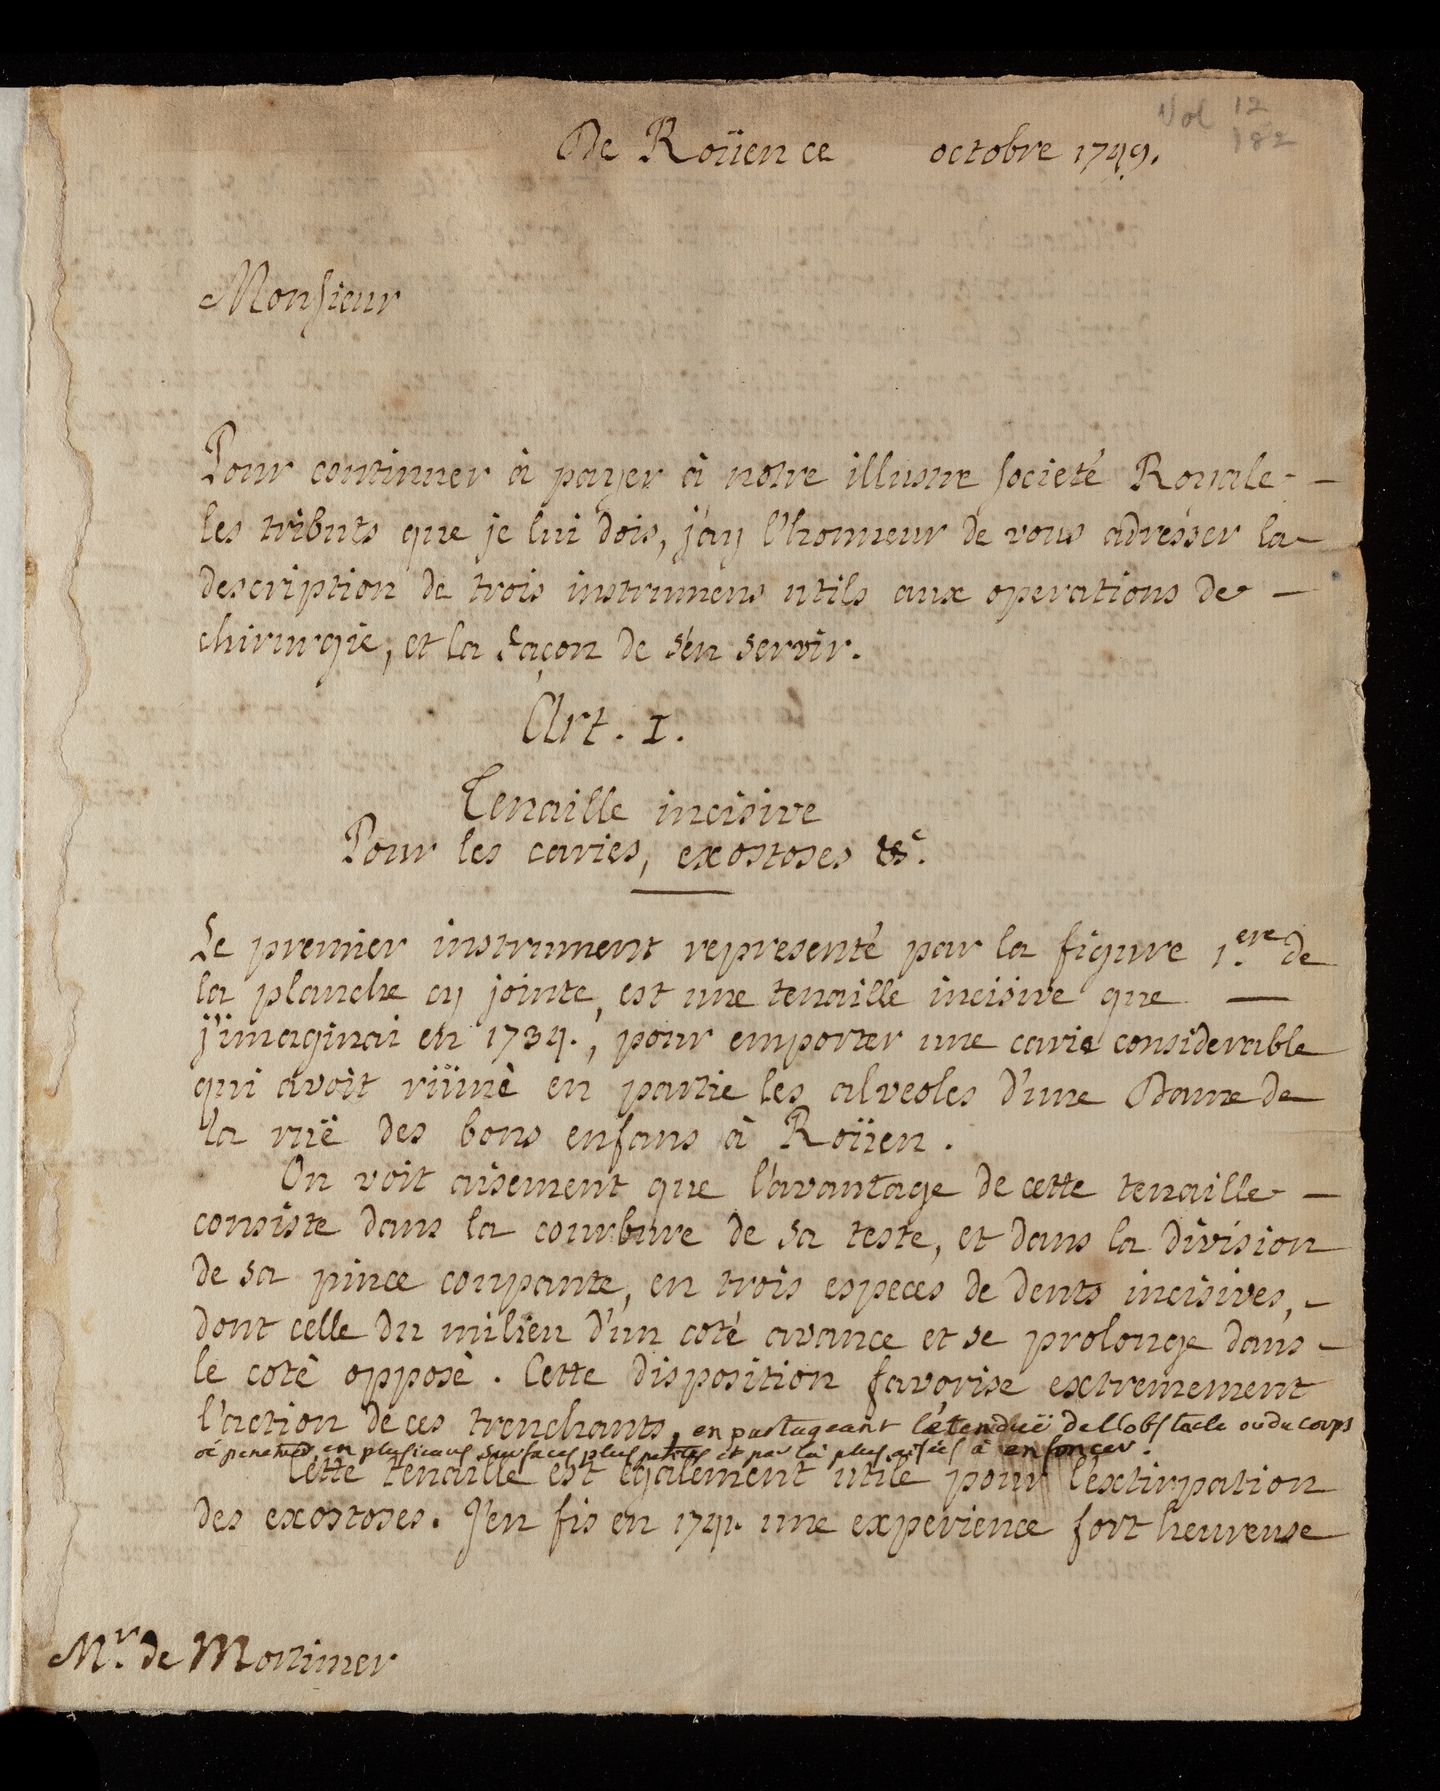 Vol 12
182
De Roüen ce octobre 1749.
Monsieur
Pour continuer à payer à notre illustre societé Royale
les tributs que je lui dois, j'ay l'honneur de vous adresser la
description de trois instrumens utils aux operations de
chirurgie, et la façon de s'en servir.
Art. 1.
Tenaille incisive
Pour les caries, exostoses &c.
Le premier instrument representé par la figure 1.ere de
la planche cy jointe, est une tenaille incisive que
j'imaginai en 1734., pour emporter une carie considerable
qui avoit rüinè en partie les alveoles d'une Dame de
la ruë des bons enfans à Roüen.
On voit aisement que l'avantage de cette tenaille
consiste dans la courbure de sa teste, et dans la division
de sa pince coupante, en trois especes de dents incisives,
dont celle du milieu d'un coté avance et se prolonge dans
le coté opposè. Cette disposition favorise extremement
l'action de ces trenchants, en partageant l'étenduë de l'obstacle ou du corps
à penetrer en plusieurs surfaces plus petites et par là plus aisées à enfoncer.
Cette tenaille est egalement utile pour l'extirpation
des exostoses. J'en fis en 1741. une experience fort heureuse
Mr. de Mortimer